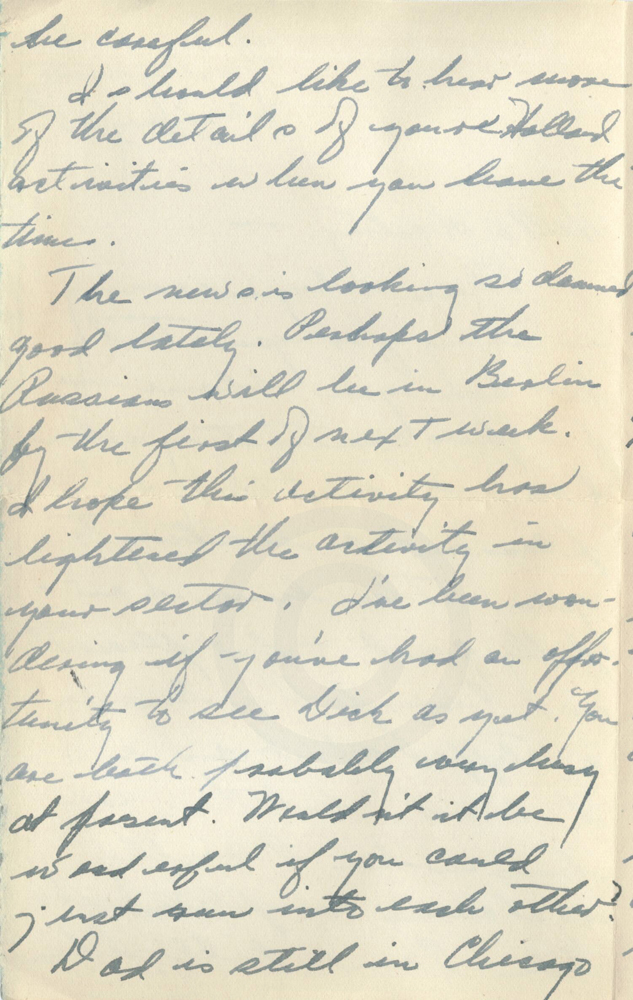 be careful.
I should like to hear more
of the details of your Holland
activities when you have the
time.
The news is looking so damned
good lately. Perhaps the
Russians will be in Berlin
by the first of next week.
I hope this activity has
lightened the activity in
your sector. I've been won-
dering if you've had an oppor-
tunity to see Dick as yet. You
are both probably very busy
at present. Wouldn't it be
wonderful if you could
just run into each other?
Dad is still in Chicago